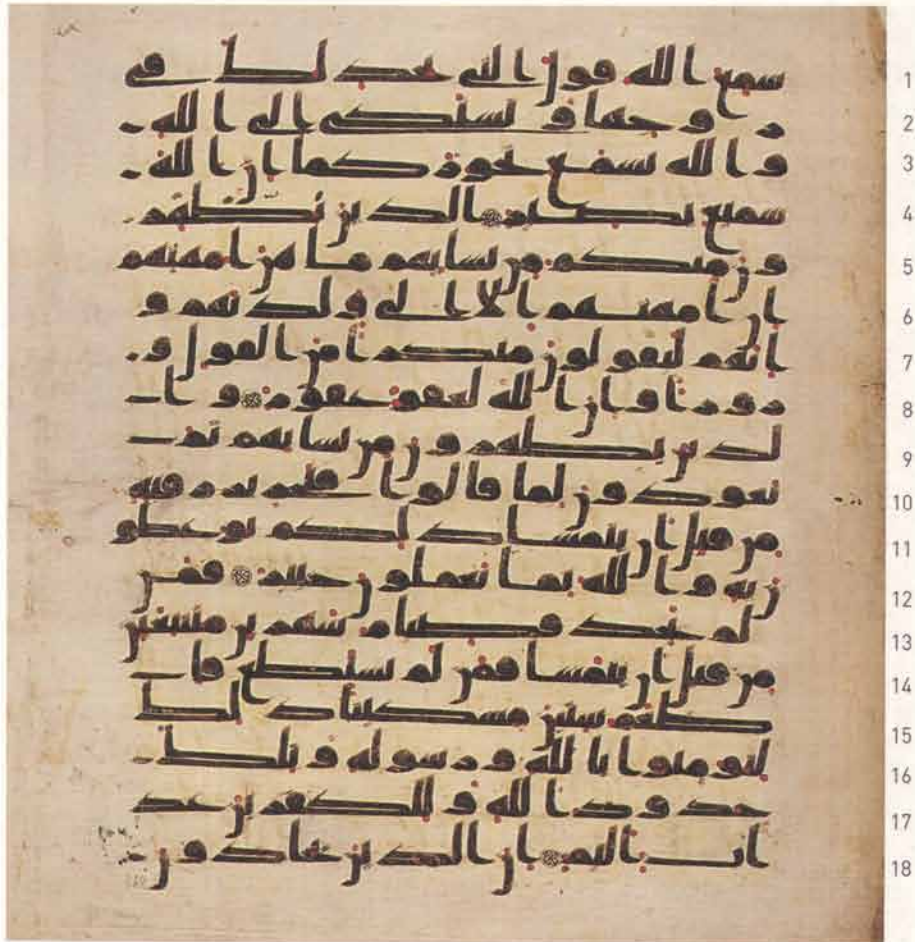 1 سمع الله قول التي تجدلك في
2 زوجها وتشتكي الى الله
3 والله يسمع تحوركما ان الله
4 سميع بصير الذين يظهر
5 ون منكم من نسايهم ما هن امهتهم
6 ان امهتهم الا الى ولدنهم و
7 انهم ليقولون منكرا من القول و
8 زورا وان الله لعفو غفور وا
9 لذين يظهرون من نسايهم ثم
10 يعودون لما قالوا فتحرير رقبة
11 من قبل ان يتماسا ذلكم توعظو
12 ن به والله بما تعملون خبير فمن
13 لم يجد فصيام شهرين متتابعين
14 من قبل ان يتماسا فمن لم يستطع فا
15 طعام ستين مسكينا ذلك
16 لتومنوا بالله ورسوله وتلك
17 حدود الله وللكفرين عذ
18 اب اليم ان الذين يحادون